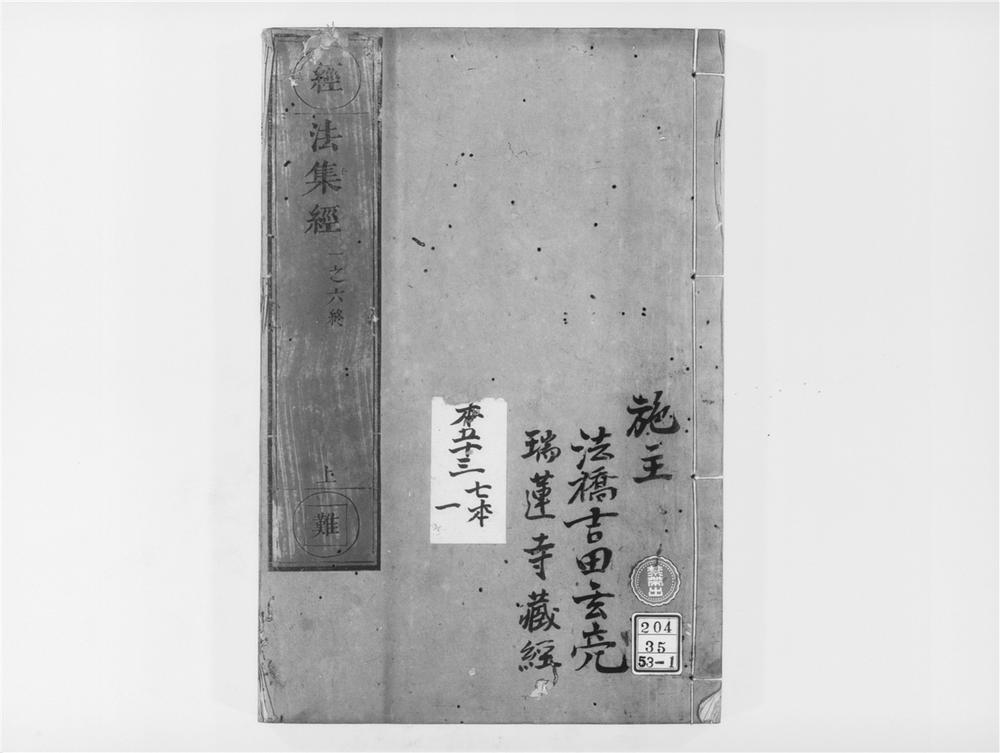 施主
法橋吉田玄亮
瑞蓮寺藏經
禁帶出
204
35
53-1
本五十三
七本
一
經
法集經
一之六終
上
難